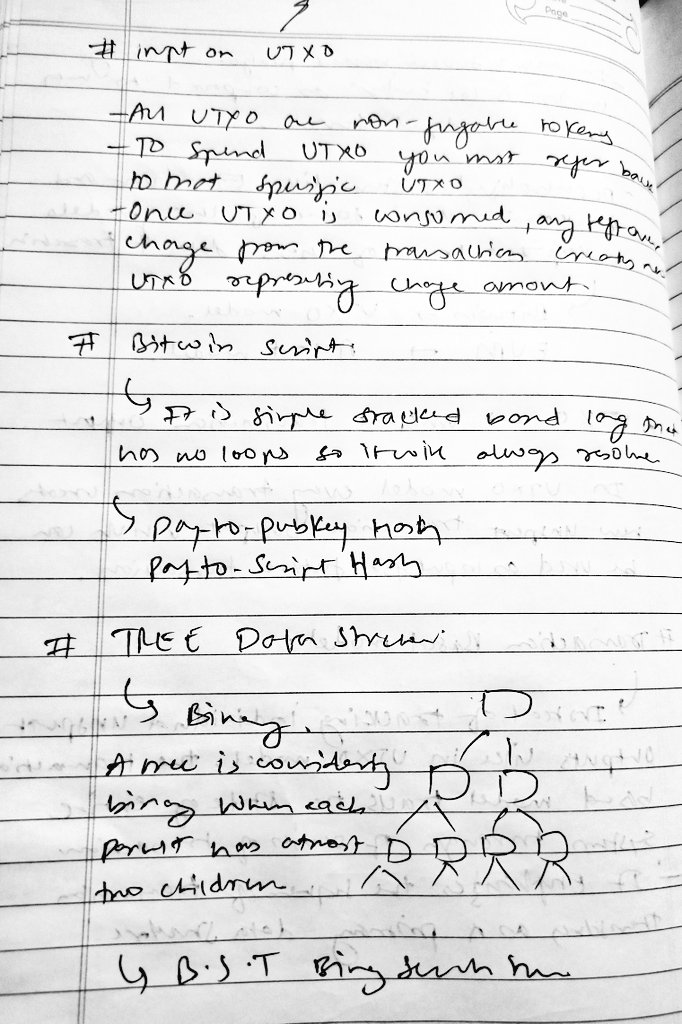 Page
# inpt on UTXO
- All UTXO are non-fungable tokens
- To spend UTXO you must refer back
to that specific UTXO
- Once UTXO is consumed, any leftover
change from the transactions creates new
UTXO representing change amount.
# Bitcoin script:
↳ It is simple stacked based lang that
has no loops so it will always resolve
↳ Pay-to-PubKey Hash
Pay-to-Script Hash
# TREE Data Structure:
↳ Binary.
A tree is considered
binary when each
parent has atmost
two children
D
D D
D D D D
↳ B.S.T Binary Search Tree